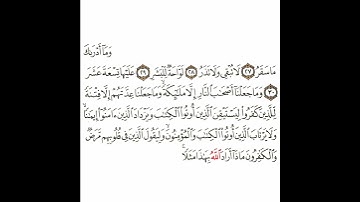 وَمَآ أَدۡرَىٰكَ
مَا سَقَرُ ٢٧ لَا تُبۡقِي وَلَا تَذَرُ ٢٨ لَوَّاحَةٞ لِّلۡبَشَرِ ٢٩ عَلَيۡهَا تِسۡعَةَ عَشَرَ
٣٠ وَمَا جَعَلۡنَآ أَصۡحَٰبَ ٱلنَّارِ إِلَّا مَلَٰٓئِكَةٗۖ وَمَا جَعَلۡنَا عِدَّتَهُمۡ إِلَّا فِتۡنَةٗ
لِّلَّذِينَ كَفَرُواْ لِيَسۡتَيۡقِنَ ٱلَّذِينَ أُوتُواْ ٱلۡكِتَٰبَ وَيَزۡدَادَ ٱلَّذِينَ ءَامَنُوٓاْ إِيمَٰنٗا
وَلَا يَرۡتَابَ ٱلَّذِينَ أُوتُواْ ٱلۡكِتَٰبَ وَٱلۡمُؤۡمِنُونَ وَلِيَقُولَ ٱلَّذِينَ فِي قُلُوبِهِم مَّرَضٞ
وَٱلۡكَٰفِرُونَ مَاذَآ أَرَادَ ٱللَّهُ بِهَٰذَا مَثَلٗاۚ